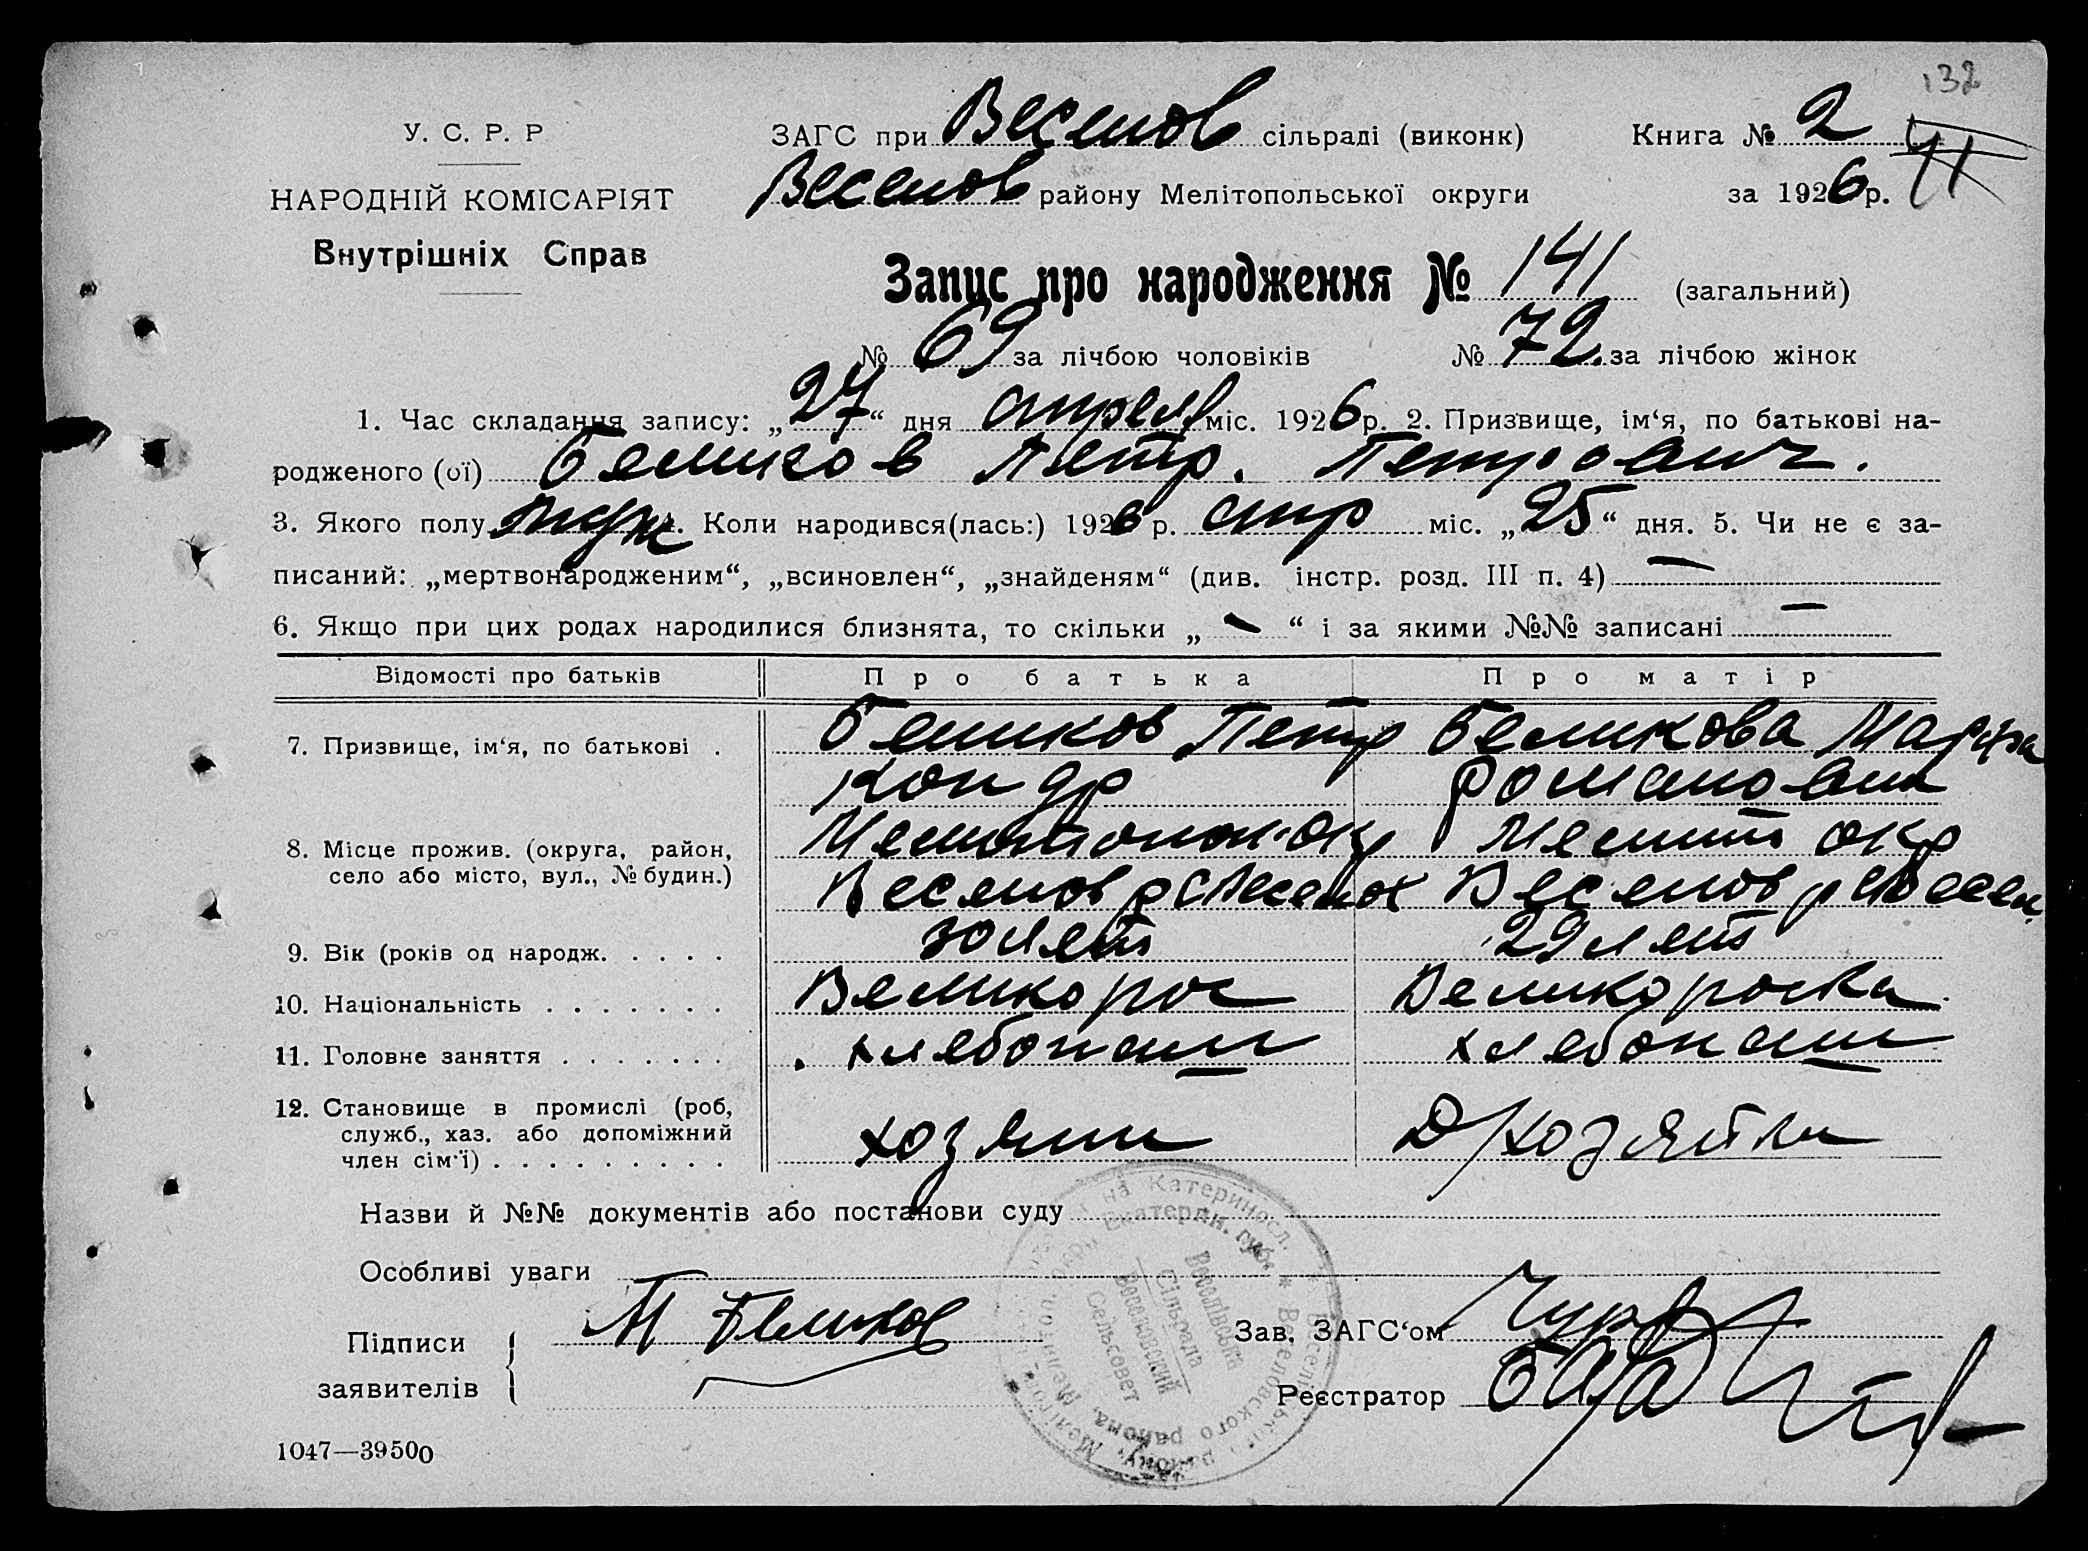 132
У. С. Р. Р
НАРОДНІЙ КОМІСАРІЯТ
Внутрішніх Справ
ЗАГС при Веселов сільраді (виконк)
Веселов району Мелітопольської округи
Книга № 2
за 1926 р.
Запис про народження № 141 (загальний)
№ 69 за лічбою чоловіків № 72. за лічбою жінок
1. Час складання запису: „27“ дня апреля міс. 1926 р. 2. Призвище, ім‘я, по батькові на-
родженого (ої) Беликов Петр. Петрович.
3. Якого полу муж. 4. Коли народився(лась:) 1926 р. апр міс. „25“ дня. 5. Чи не є за-
писаний: „мертвонародженим“, „всиновлен“, „знайденям“ (див. інстр. розд. III п. 4) —
6. Якщо при цих родах народилися близнята, то скільки „ — “ і за якими №№ записані —
Відомості про батьків Про батька Про матір
7. Призвище, ім‘я, по батькові . Беликов Петр Беликова Марфа
Кондр Романовна
8. Місце прожив. (округа, район, Мелитопол. ок Мелит окр
село або місто, вул., № будин.) Веселов р с Веселое Веселов р с Весел.
9. Вік (років од народж. . . . . 30 лет 29 лет
10. Національність . . . . . . . Великорос Великороска
11. Головне заняття . . . . . . . хлебопаш хлебопаш
12. Становище в промислі (роб,
служб., хаз. або допоміжний хозяин Д/хозяйка
член сім'ї) . . . . . . . . .
Назви й №№ документів або постанови суду
Особливі уваги
Підписи П Беликов Зав. ЗАГС‘ом
заявителів Реєстратор
Веселівська
Сільрада
Веселовский
Сельсовет
1047—39500